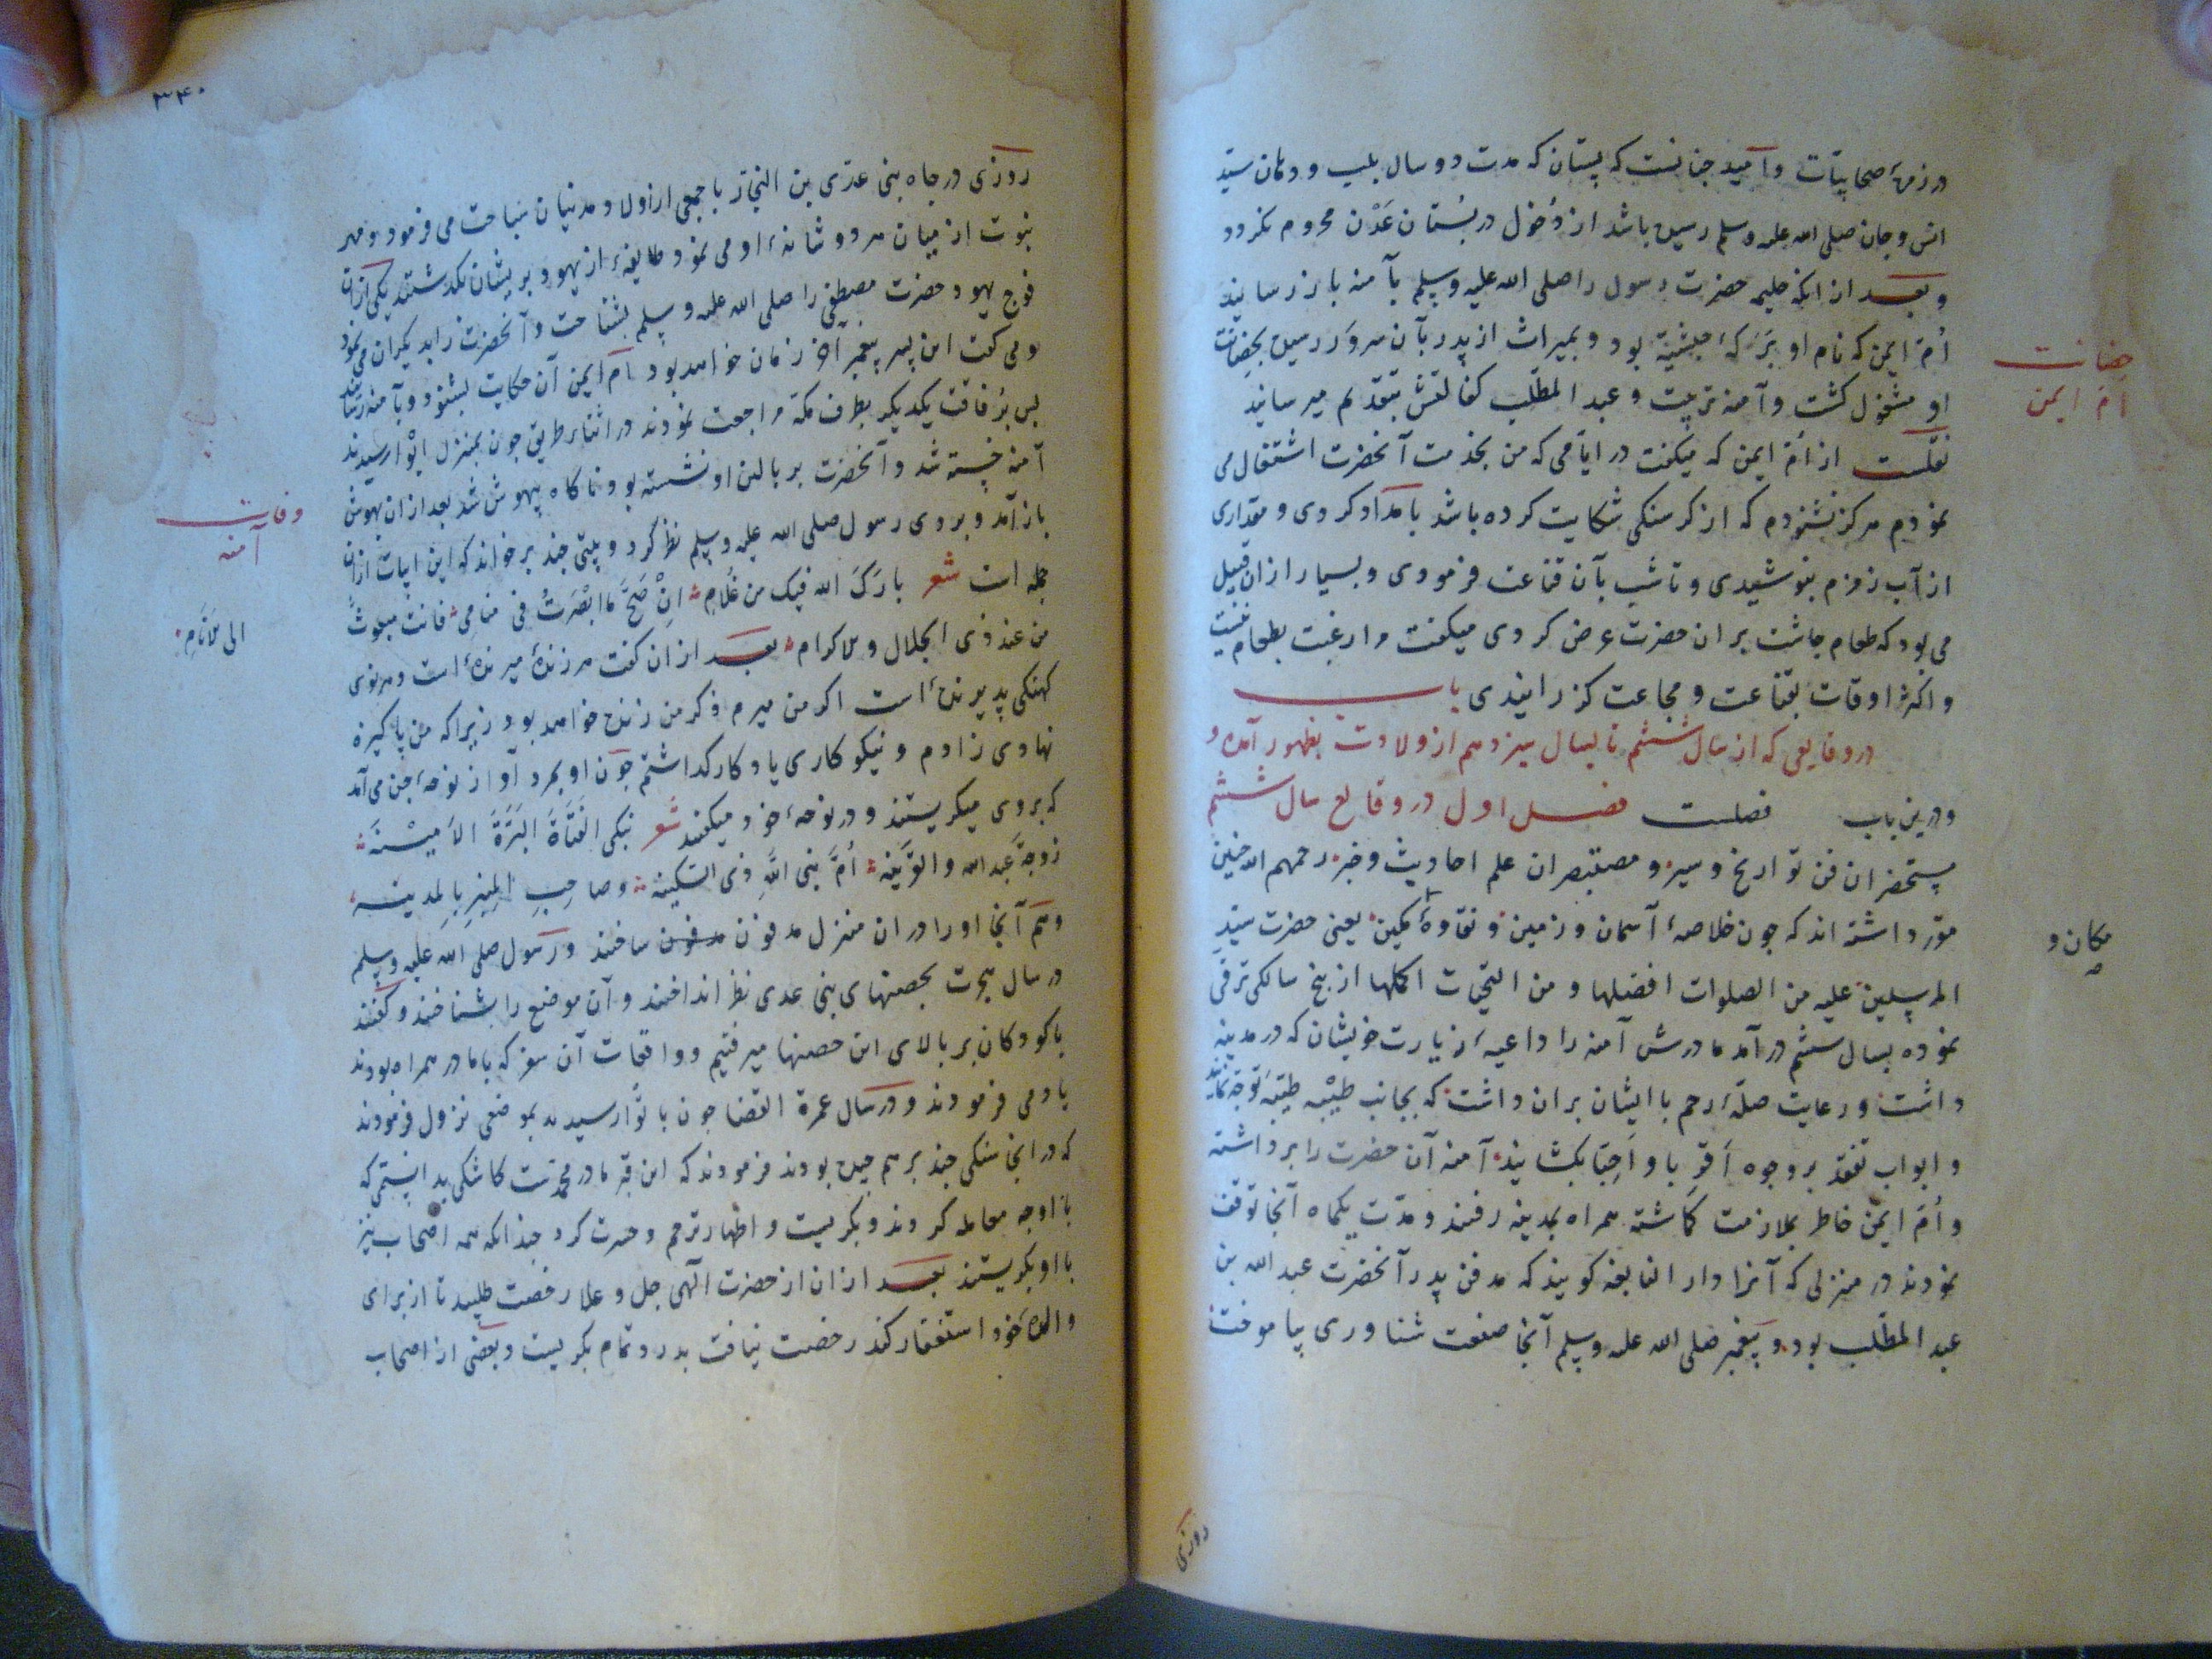 در زمرهٔ صحابیّات و امید چنانست که پستان که مدت دو سال بلب و دهان سیّد
انس و جان صلی الله علیه وسلم رسیده باشد از دُخول در بُستان عَدْن محروم نکردد
و بعد از انکه حلیمه حضرت رسول را صلی الله علیه وسلم بآمنه باز رسانید
اُمّ ایمن که نام او بَرَکهٔ حبشیّه بود و بمیراث از پدر بآن سرور رسیده بحِضانت
حِضانت
امّ ایمن
او مشغول کشت و آمنه تربیت و عبد المطّلب کفالتش بتقدیم میرسانید
نقلست از اُمّ ایمن که میکفت در ایّامی که من بخدمت آنحضرت اشتغال می
نمودم هرکز نشنودم که از کرسنکی شکایت کرده باشد بامداد کردی و مقداری
از آب زمزم بنوشیدی و تا شب بآن قناعت فرمودی و بسیار از ان قبیل
می بود که طعام چاشت بر ان حضرت عرض کردی میکفت مرا رغبت بطعام نیست
و اکثر اوقات بقناعت و مجاعت کذرانیدی باب
در وقایعی که از سال ششم تا بسال سیزدهم از ولادت بظهور آمده و
و درین باب فصلست فصل اول در وقایع سال ششم
مستحضران فن تواریخ و سیر و مستبصران علم احادیث و خبر رحمهم الله چنین
مقرر داشته اند که چون خلاصهٔ آسمان و زمین و نقاوهٔ مکین یعنی حضرت سیّدِ
مکان و
المرسلین علیه من الصلوات افضلها و من التحیّات اکملها از پنج سالکی ترقی
نموده بسال ششم درآمد مادرش آمنه را داعیهٔ زیارت خویشان که در مدینه
داشت و رعایت صلهٔ رحم با ایشان بران داشت که بجانب طَیْبه طیّبه توجّه نمایند
و ابواب تفقد بر وجوه اَقرِبا و اَحِبّا بکشایند آمنه آن حضرت را برداشته
و اُمّ ایمن خاطر بملازمت کماشته همراه بمدینه رفتند و مدّت یکماه آنجا توقف
نمودند در منزلی که آنرا دار النابغه کویند که مدفن پدر آنحضرت عبد الله بن
عبد المطّلب بود و پیغمبر صلی الله علیه وسلم آنجا صنعت شناوری بیاموخت
روزی
۳۴۰
روزی در چاه بنی عدی بن النجّار با جمعی از اولاد مدنیان سباحت می فرمود و مهر
نبوت از میان هر دو شانهٔ او می نمود طایفهٔ از یهود بریشان بکذشتند یکی ازان
فوج یهود حضرت مصطفی را صلی الله علیه وسلم بشناخت و آنحضرت را بدیکران می نمود
و می کفت این پسر پیغمبر آخر زمان خواهد بود اُم ایمن آن حکایت بشنود و بآمنه رسانید
پس برُفاقت یکدیکر بطرف مکّه مراجعت نمودند در اثناء طریق چون بمنزل ابْوا رسیدند
آمنه خسته شد و آنحضرت بر بالین او نشسته بود ناکاه بیهوش شد بعد از ان بهوش
وفات
آمنه
باز آمد و بروی رسول صلی الله علیه وسلم نظر کرد و بیتی چند برخواند که این ابیات ازان
جمله است شعر بارَکَ الله فیک من غُلامِ اِنْ صَحَّ ما ابْصَرتُ فی منامی فانت مبعوثٌ
الی الانَامِ
من عند ذی الجلال والاکرام بعد از ان کفت هر زندهٔ میرندهٔ است و هر نوی
کهنکی پذیرندهٔ است اکر من میرم ذکر من زنده خواهد بود زیراکه من پاکیزه
نهادی زادم و نیکوکاری یادکار کذاشتم چون او بمرد آواز نوحهٔ جن می آمد
که بروی میکریستند و در نوحهٔ خود میکفتند شعر نبکی الفَتَاةَ البَرَّةَ الاَمِیْنَه
زوجةَ عبدالله والقَرِینه اُمَّ نبی اللهِ ذی السکینه وصاحِبِ المنبرِ بِالمدینه
و هم آنجا او را در ان منزل مدفون مدفون ساختند و رسول صلی الله علیه وسلم
در سال هجرت بحصنهای بنی عدی نظر انداختند و آن موضع را بشناختند و کفتند
با کودکان بر بالای این حصنها میرفتیم و واقعات آن سفر که با مادر همراه بودند
یاد می فرمودند و در سال عمرة القضا چون بابْوا رسیدند بموضعی نزول فرمودند
که در انجا سنکی چند بر هم چیده بودند فرمودند که این قبر مادر محمدست کاشکی بدانستمی که
با او چه معامله کردند و بکریست و اظهار ترحم و حسرت کرد چندانکه همه اصحاب نیز
با او بکریستند بعد از ان از حضرت الهی جل و علا رخصت طلبید تا از برای
والدهٔ خود استغفار کند رخصت نیافت بدرد تمام بکریست و بعضی از اصحاب